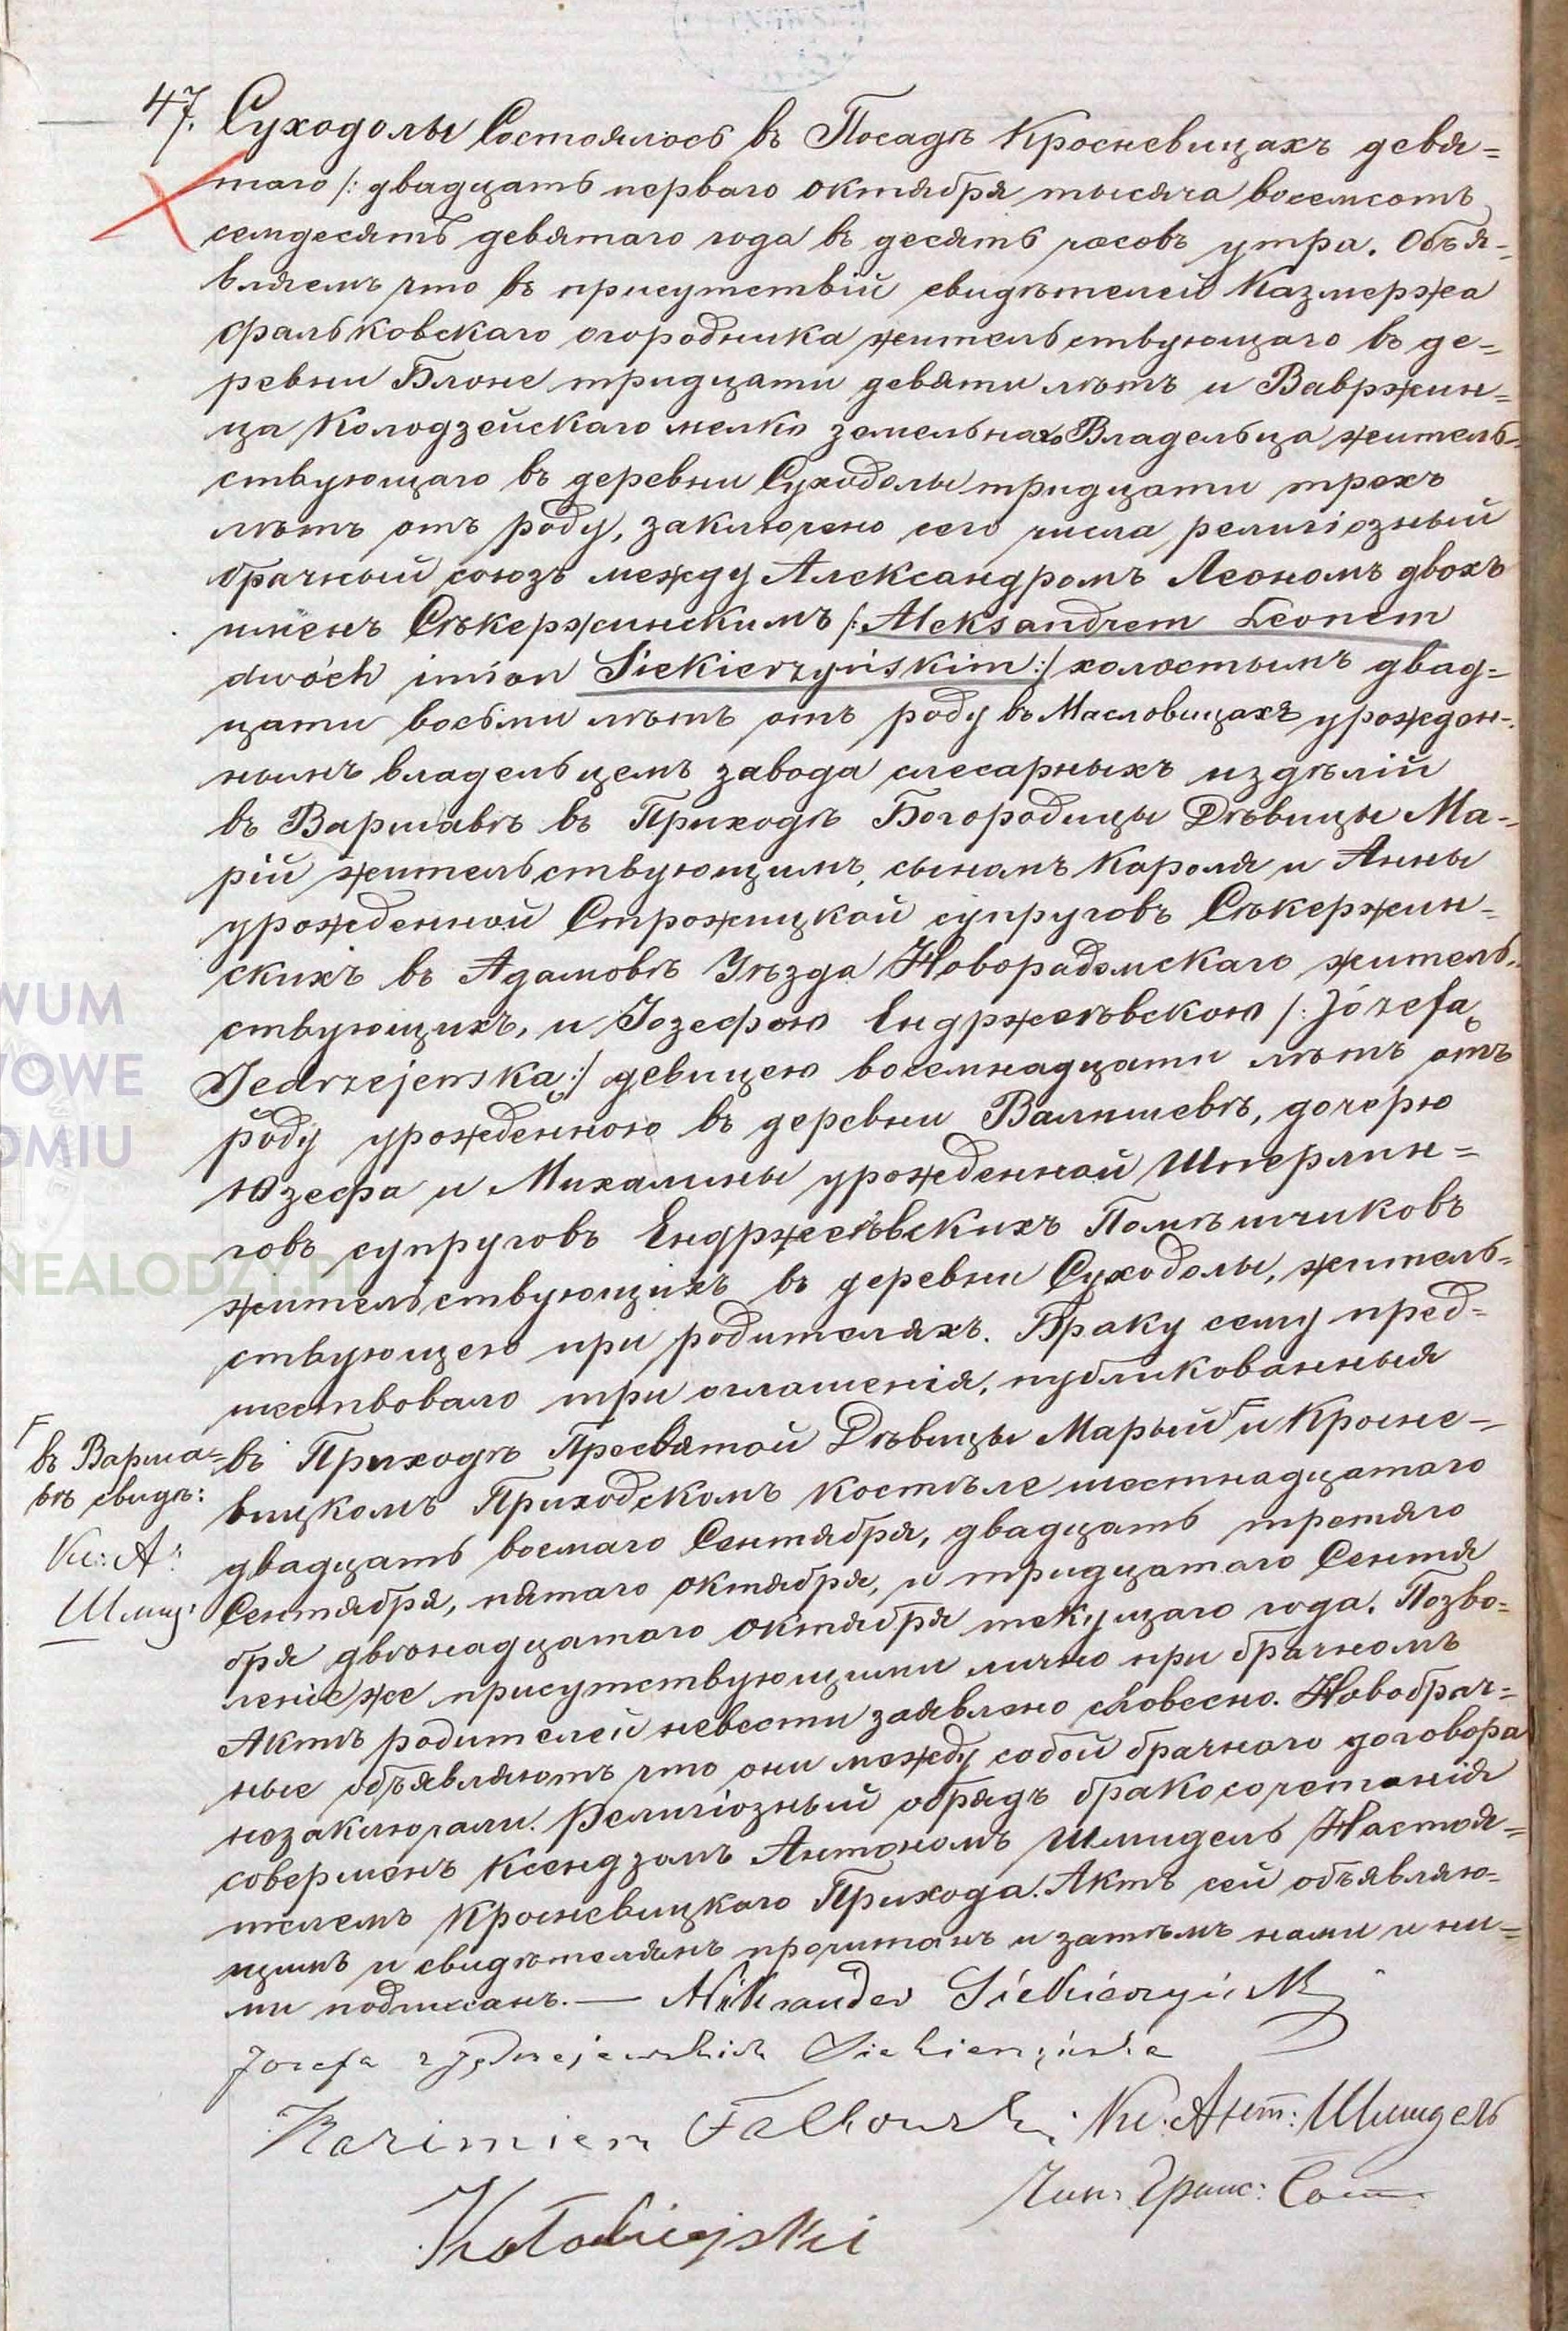 47. Суходолы Состоялось въ Посадѣ Кросневицахъ девя=
таго /: двадцать перваго Октября тысяча восемсотъ
семдесятъ девятаго года въ десять часовъ утра. Объя=
вляемъ что въ присутствій свидѣтелей Казмержа
Фальковскаго огородника жительствующаго въ де=
ревни Блоне тридцати девяти лѣтъ и Вавржин=
ца Колодзейскаго мелко земельнаго Владельца житель=
ствующаго въ деревни Суходолы тридцати трехъ
лѣтъ отъ роду, заключено сего числа религіозный
брачный союзъ между Александромъ Леономъ двохъ
именъ Сѣкержинскимъ /: Aleksandrem Leonem
dwóch imion Siekierzyńskim :/ холостымъ двад=
цати восьми лѣтъ отъ роду въ Масловицахъ урожден=
нымъ владельцемъ завода слесарныхъ издѣлій
въ Варшавѣ въ Приходѣ Богородицы Дѣвицы Ма=
рій жительствующимъ, сыномъ Кароля и Анны
урожденной Строжицкой супруговъ Сѣкержин=
скихъ въ Адамовѣ Уѣзда Новорадомскаго житель=
ствующихъ, и Іозефою Ендржеевскою /: Józefą
Jedrzejewską :/ девицею восемнадцати лѣтъ отъ
роду урожденною въ деревни Валишевѣ, дочерю
Юзефа и Михалины урожденной Шперлин=
говъ супруговъ Ендржеевскихъ Помѣщиковъ
жительствующихъ въ деревни Суходолы, житель=
ствующею при родителяхъ. Браку сему пред=
шествовало три оглашенія, публикованныя
въ Приходѣ Пресвятой Дѣвицы Марый Г и Кросне=
вицкомъ Приходскомъ костѣле шестнадцатаго
двадцать восмаго Сентября, двадцать третяго
Сентября, пятаго Октября, и тридцатаго Сентя
бря двѣнадцатаго Октября текущаго года. Позво=
леніе же присутствующими лично при брачномъ
Актѣ родителей невести заявлено словесно. Новобрач=
ные объявляютъ что они между собой брачнаго договора
незаключали. Религіозный обрядъ бракосочетанія
совершенъ Ксендзомъ Антономъ Шмидель Настоя=
телемъ Кросневицкаго Прихода. Актъ сей объявляю=
щимъ и свидѣтелямъ прочитанъ и затѣмъ нами и ни=
ми подписанъ. — Aleksander Siekierzyński
Józefa z Jędrzejewskich Siekierzyńska
Kazimierz Falkowski Кс. Ант: Шмидель
Чин: Граж: Сост
Kołodziejski
Г
въ Варша=
вѣ свидѣ:
Кс: А:
Шмид:
WUM
WOWE
OMIU
NEALODZY.PL